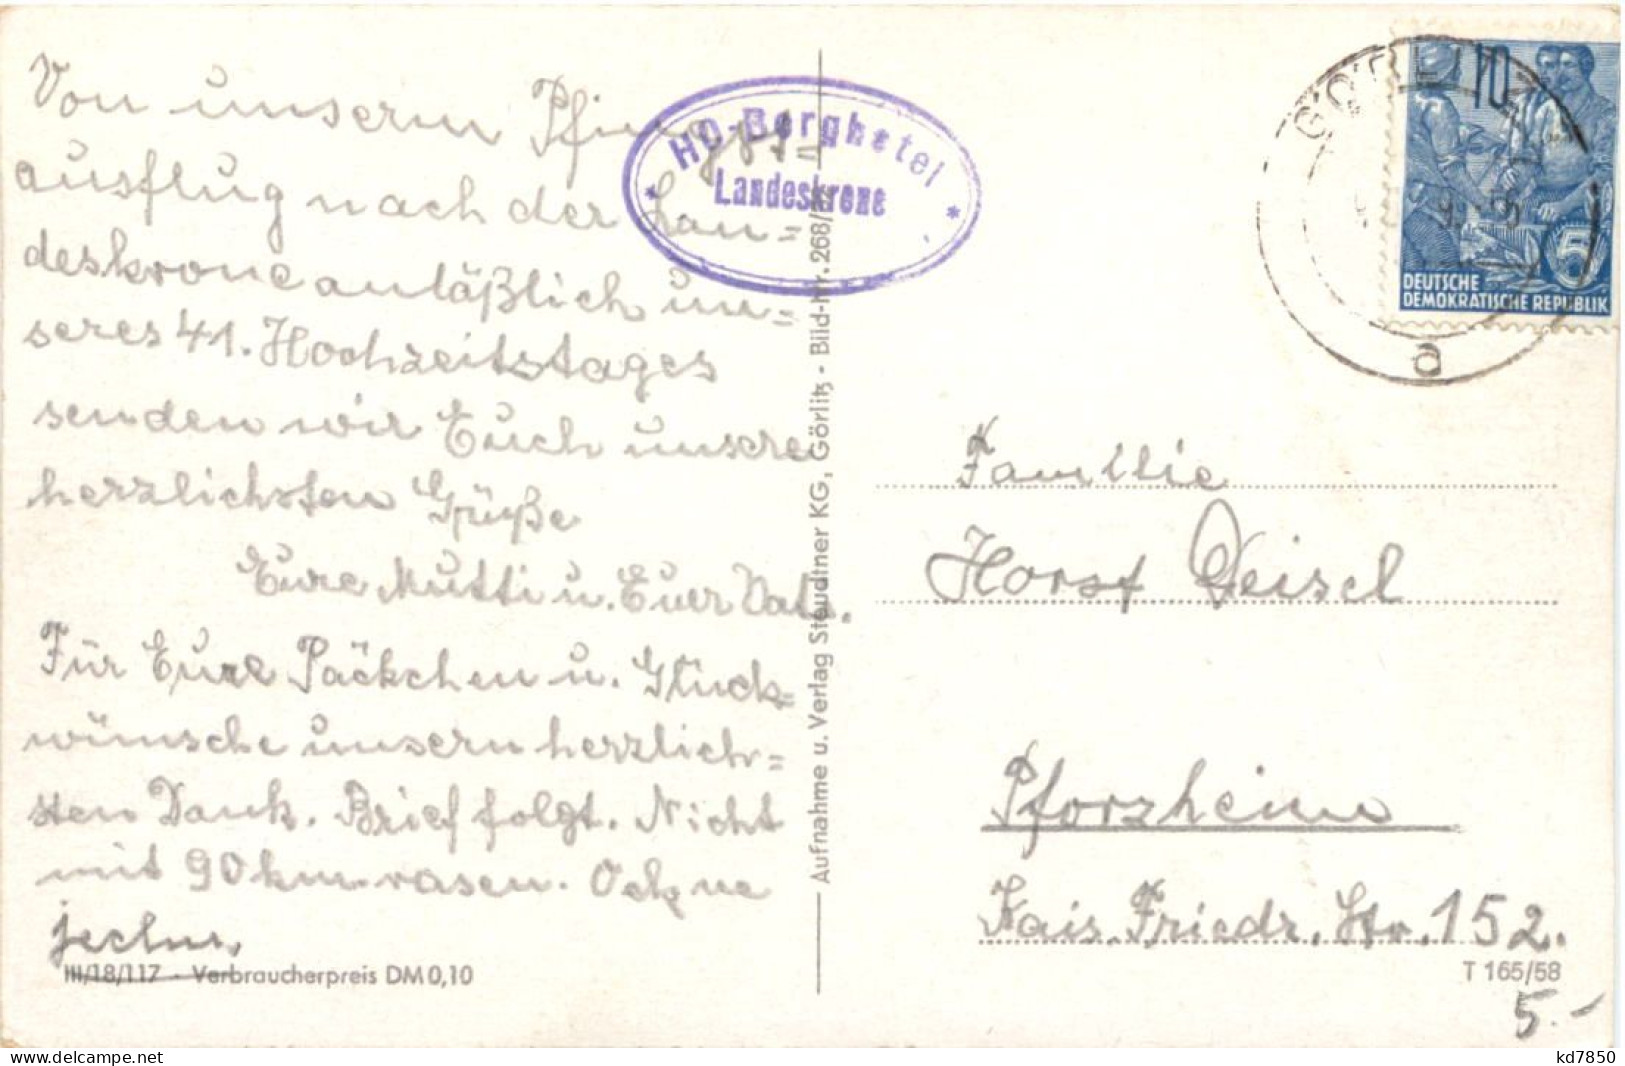 Von unserm Pfingst=
ausflug nach der Lan=
deskrone anläßlich un=
seres 41. Hochzeitstages
senden wir Euch unsere
herzlichsten Grüße
Eure Mutti u. Euer Vati.
Für Eure Päckchen u. Glück=
wünsche unsern herzlich=
sten Dank. Brief folgt. Nicht
mit 90 km rasen.
III/18/117 · Verbraucherpreis DM 0,10
HO-Berghotel
Landeskrone
Aufnahme u. Verlag Steudtner KG, Görlitz - Bild-Nr. 268/
GÖRLITZ
a
10
5
DEUTSCHE
DEMOKRATISCHE REPUBLIK
Familie
Horst Deisel
Pforzheim
Kais. Friedr. Str. 152.
T 165/58
5.-
delcampe.net
kd7850